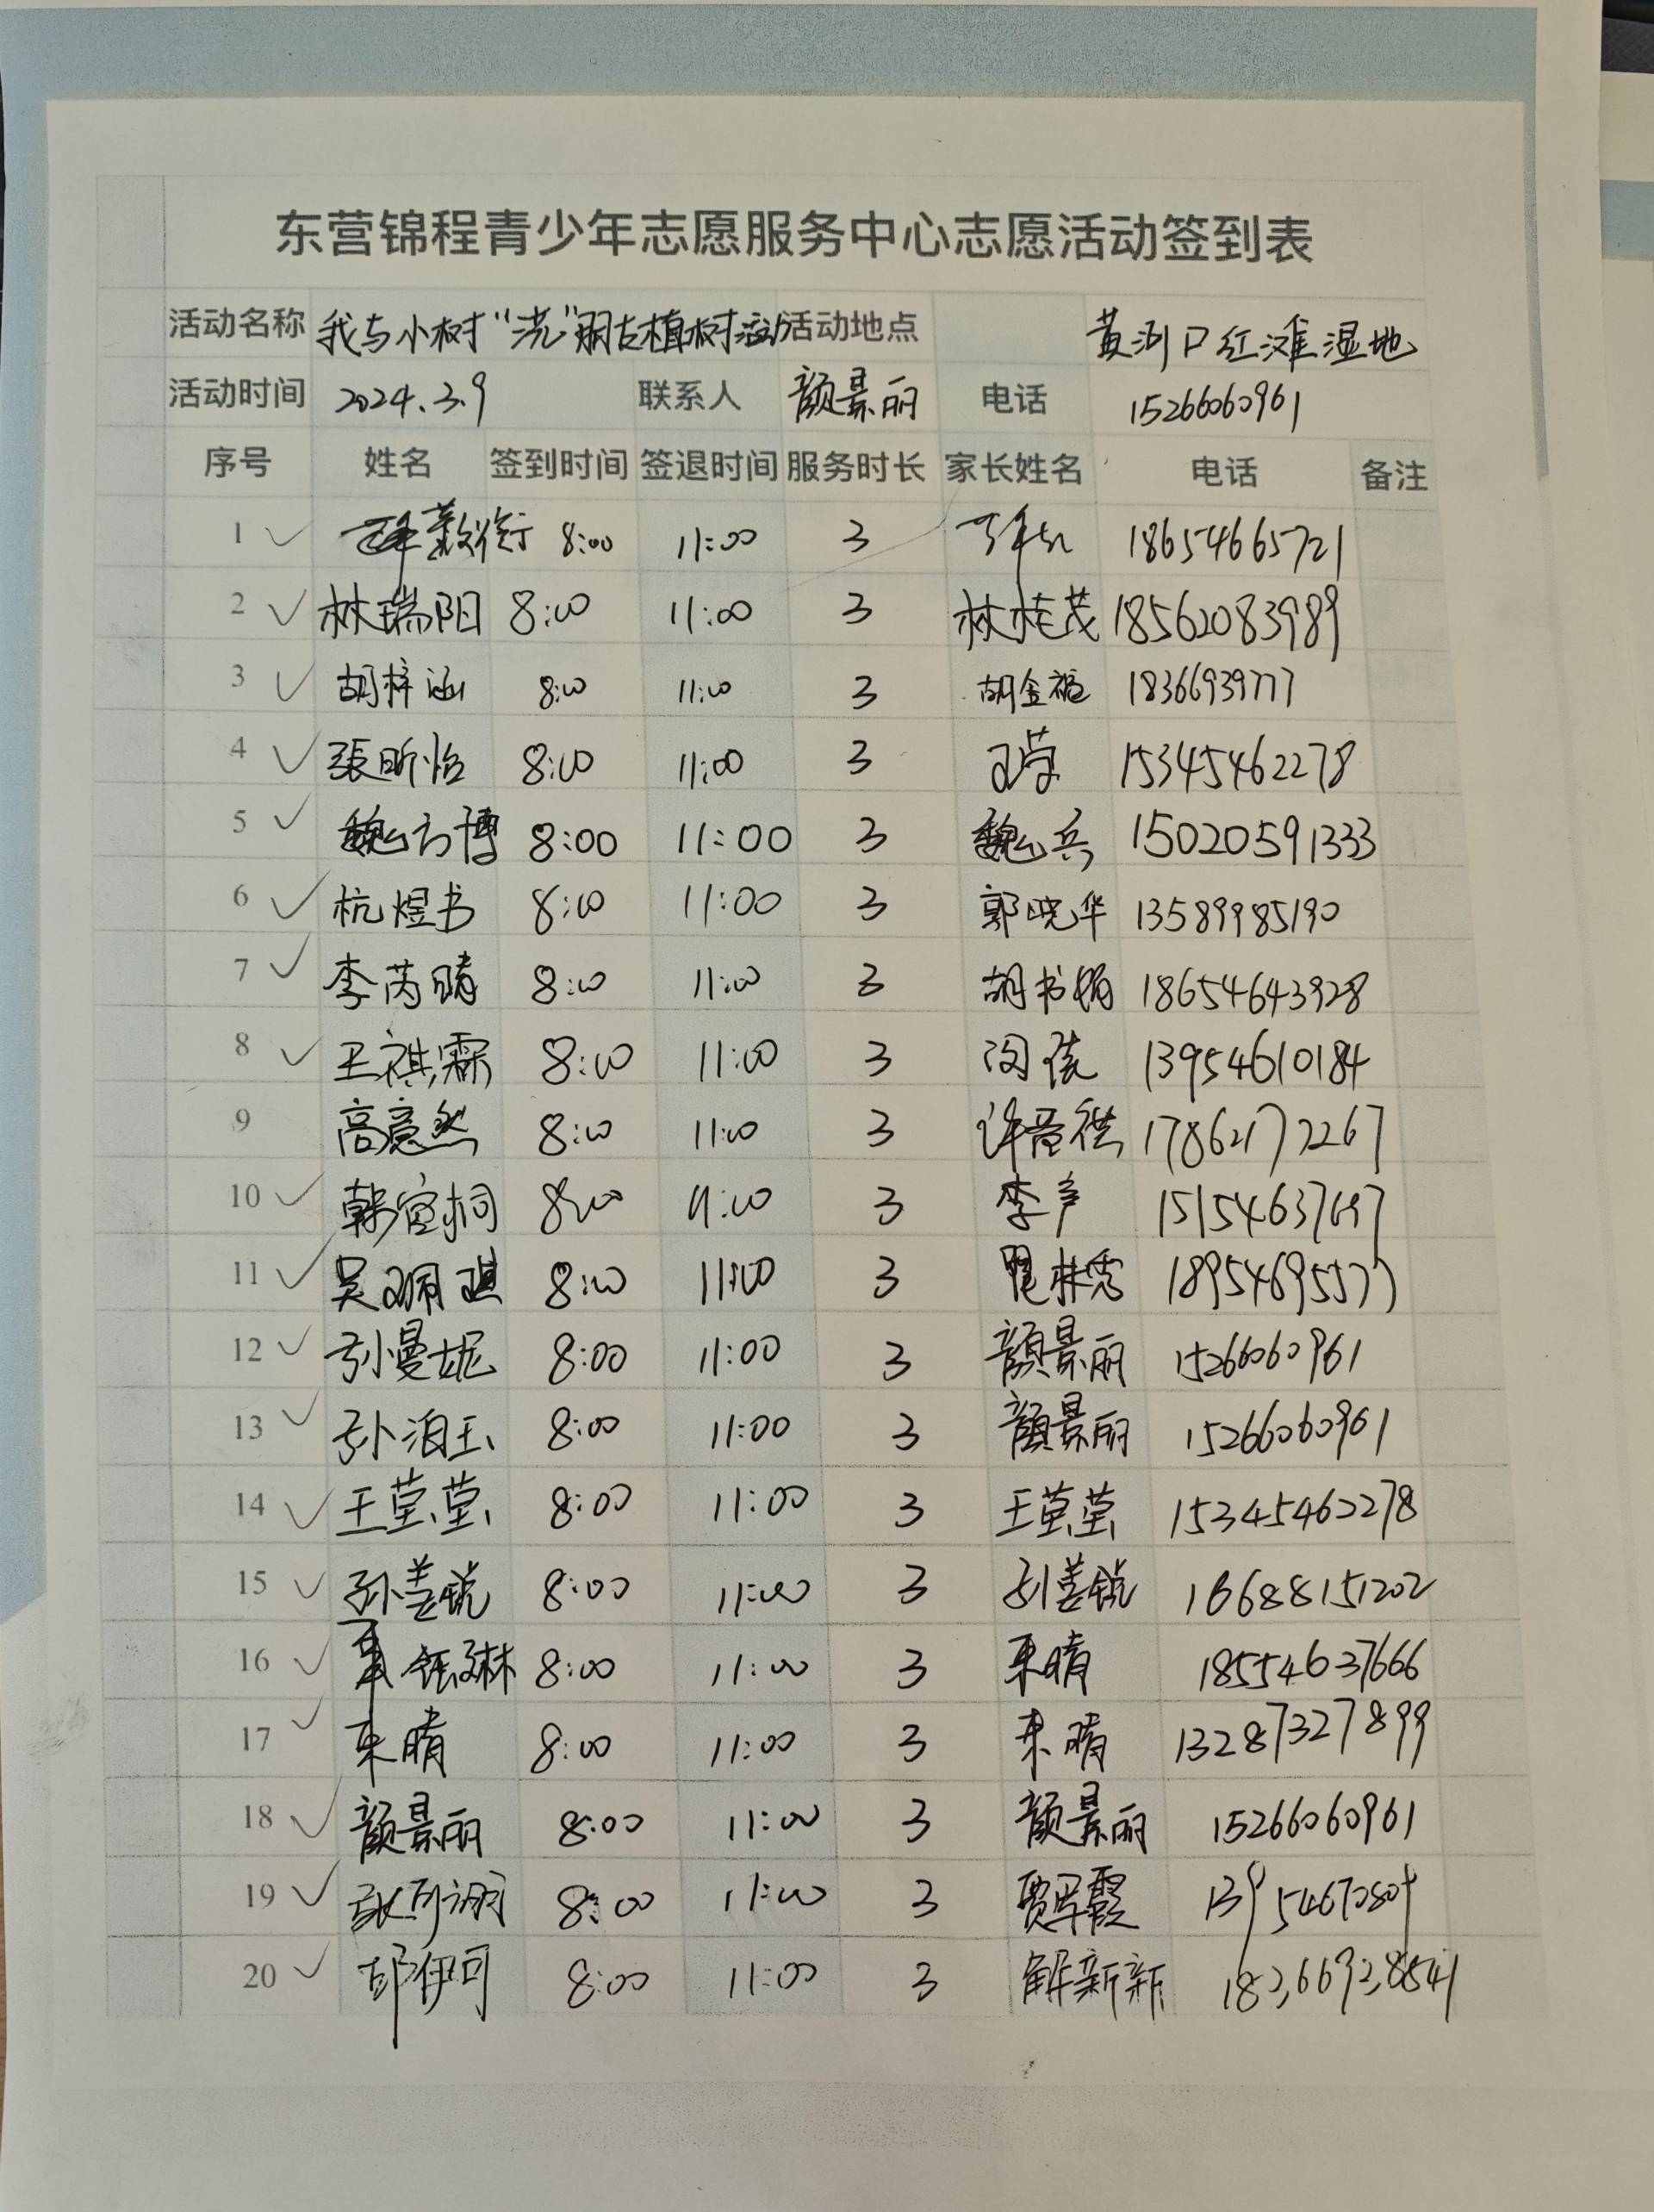 东营锦程青少年志愿服务中心志愿活动签到表
活动名称 我与小树“洗”朋友植树活动 活动地点 黄河口红滩湿地
活动时间 2024.3.9 联系人 颜景丽 电话 15266060961
序号 姓名 签到时间 签退时间 服务时长 家长姓名 电话 备注
1 8:00 11:00 3 18654665721
2 林瑞阳 8:00 11:00 3 林桂茂 18562083989
3 胡梓涵 8:00 11:00 3 胡金福 18366939777
4 張昕怡 8:00 11:00 3 15345462278
5 魏方博 8:00 11:00 3 魏兵 15020591333
6 杭煜书 8:00 11:00 3 郭晓华 13589985190
7 李芮晴 8:00 11:00 3 胡书娟 18654643928
8 王祺霖 8:00 11:00 3 13954610184
9 高意然 8:00 11:00 3 17862177267
10 韩宜桐 8:00 11:00 3 李 15154637697
11 吴珮琪 8:00 11:00 3 18954695577
12 孙曼妮 8:00 11:00 3 颜景丽 15266060961
13 孙泊玉 8:00 11:00 3 颜景丽 15266060961
14 王莹莹 8:00 11:00 3 王莹莹 15345462278
15 孙善锐 8:00 11:00 3 孙善锐 16688151202
16 8:00 11:00 3 来晴 18554637666
17 来晴 8:00 11:00 3 来晴 13287327899
18 颜景丽 8:00 11:00 3 颜景丽 15266060961
19 8:00 11:00 3 贾军霞
20 胡伊可 8:00 11:00 3 解新新 18366928541